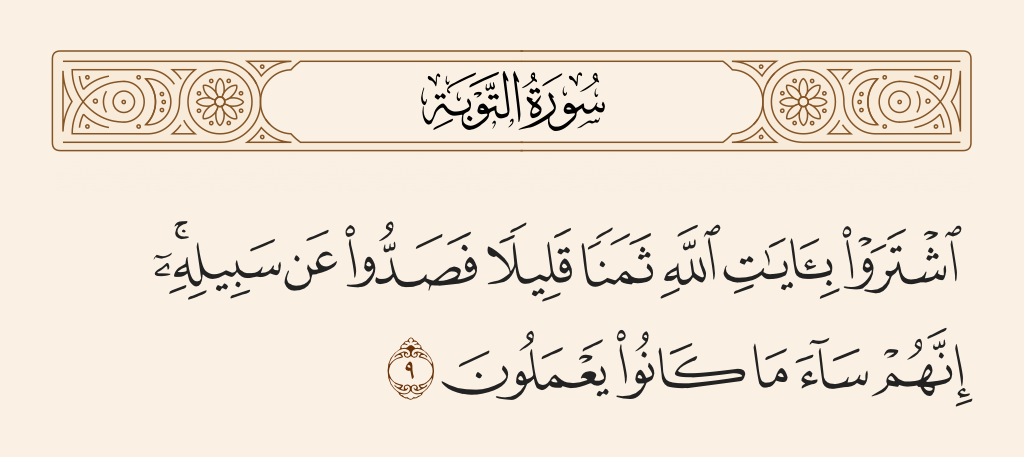 سُورَةُ التَّوۡبَةِ
ٱشۡتَرَوۡاْ بِـَٔايَٰتِ ٱللَّهِ ثَمَنٗا قَلِيلٗا فَصَدُّواْ عَن سَبِيلِهِۦٓۚ
إِنَّهُمۡ سَآءَ مَا كَانُواْ يَعۡمَلُونَ ٩